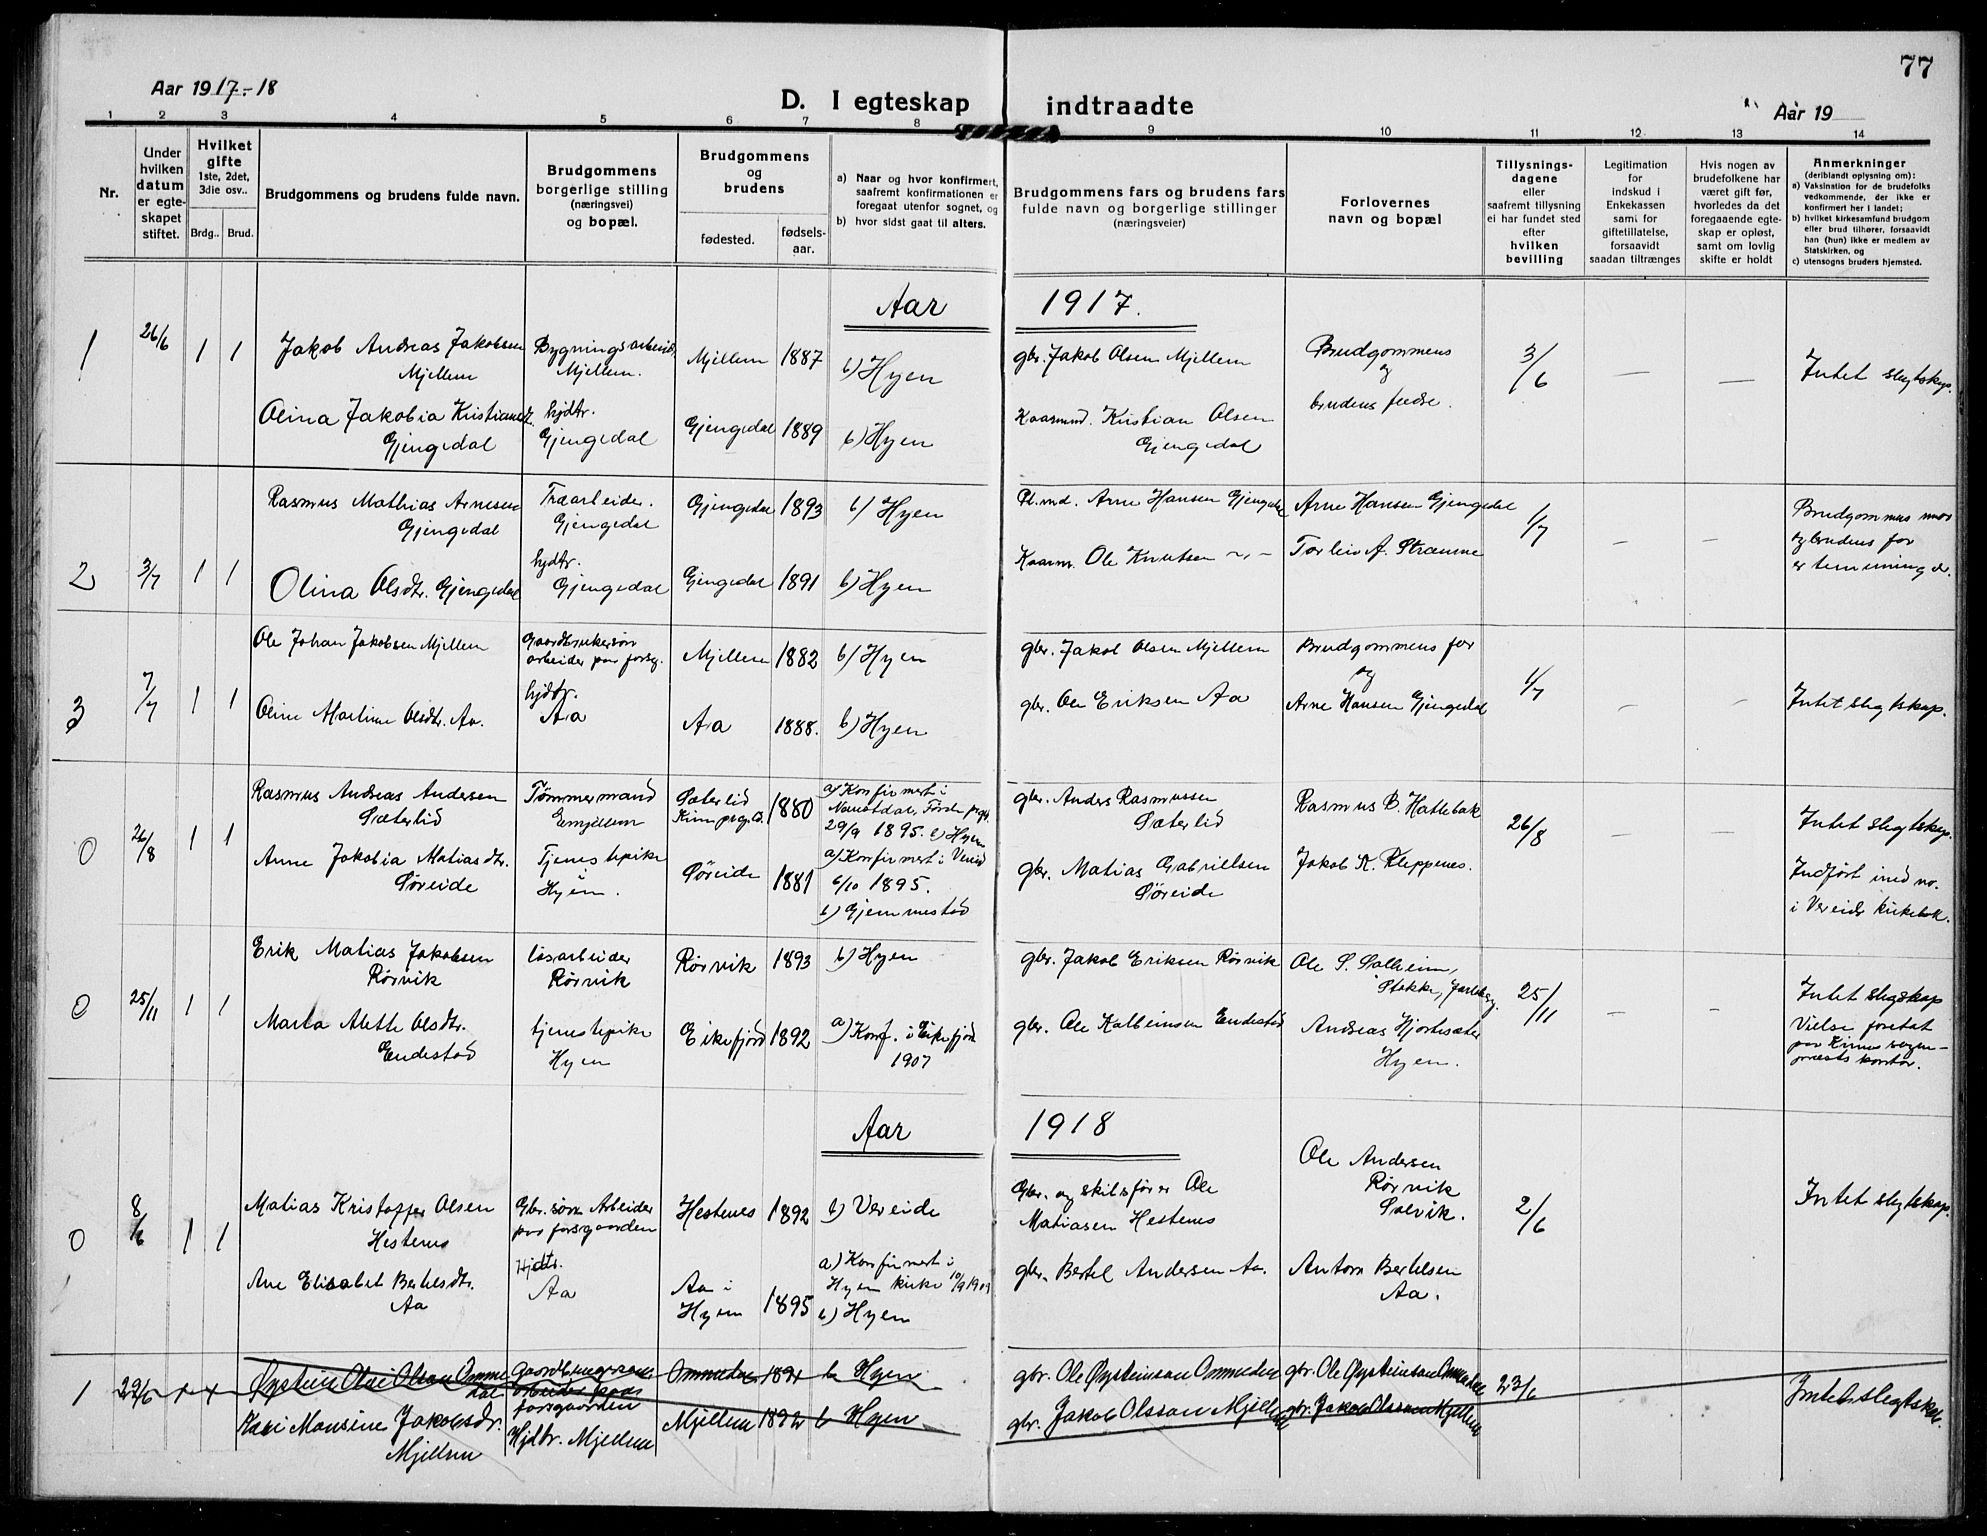 77
Aar 1917-18
D. I egteskap indtraadte
Aar 19
1 2 3 4 5 6 7 8 9 10 11 12 13 14
Nr.
Under hvilken datum er egteskapet stiftet.
Hvilket gifte 1ste, 2det, 3die osv..
Brdg.. Brud.
Brudgommens og brudens fulde navn.
Brudgommens borgerlige stilling (næringsvei) og bopæl.
Brudgommens og brudens
fødested.
fødselsaar.
a) Naar og hvor konfirmert, saafremt konfirmationen er foregaat utenfor sognet, og
b) hvor sidst gaat til alters.
Brudgommens fars og brudens fars fulde navn og borgerlige stillinger (næringsveier)
Forlovernes navn og bopæl
Tillysningsdagene eller saafremt tillysning ei har fundet sted efter hvilken bevilling
Legitimation for indskud i Enkekassen samt for giftetillatelse, forsaavidt saadan tiltrænges
Hvis nogen av brudefolkene har været gift før, hvorledes da det foregaaende egteskap er opløst, samt om lovlig skifte er holdt
Anmerkninger (deriblandt oplysning om):
a) Vaksination for de brudefolks vedkommende, der ikke er konfirmert her i landet;
b) hvilket kirkesamfund brudgom eller brud tilhører, forsaavidt han (hun) ikke er medlem av Statskirken, og
c) utensogns bruders hjemsted.
Aar 1917.
1 26/6 1 1 Jakob Andreas Jakobsen Mjellem Bygningsarbeid. Mjellem. Mjellem 1887 b) Hyen gbr. Jakob Olsen Mjellem Brudgommens og brudens fædre. 3/6 — — Intet slegtskap.
Olina Jakobia Kristiansd. Gjengedal hjdtr. Gjengedal Gjengedal 1889 b) Hyen Kaarmnd. Kristian Olsen Gjengedal
2 3/7 1 1 Rasmus Mathias Arnesen Gjengedal Træarbeider. Gjengedal Gjengedal 1893 b) Hyen Pl.md. Arne Hansen Gjengedal Arne Hansen Gjengedal 1/7 — — Brudgommens mor og brudens far er
Olina Olsdtr. Gjengedal hjdtr. Gjengedal Gjengedal 1891 b) Hyen Kaarm. Ole Knutsen —„— Torleiv A. Strømme
3 7/7 1 1 Ole Johan Jakobsen Mjellem Gaardbrukersøn arbeider paa farsg. Mjellem 1882 b) Hyen gbr. Jakob Olsen Mjellem Brudgommens far og 1/7 — — Intet slegtskap.
Oline Martine Olsdtr. Aa. hjdtr. Aa Aa 1888. b) Hyen gbr. Ole Eriksen Aa Arne Hansen Gjengedal
0 26/8 1 1 Rasmus Andreas Andersen Sæterlid Tømmermand Emjellem Sæterlid Kinn prgj. 1880 a) Konfirmert i Naustdal, Førde prgj. 29/9 1895. b) Hyen gbr. Anders Rasmussen Sæterlid Rasmus B. Hattebak 26/8 — — Intet slegtskap.
Anne Jakobia Matiasdtr. Søreide Tjenestepike Hyen. Søreide 1881 a) Konfirmert i Vereid 6/10 1895. b) Gjemmestad gbr. Matias Gabrielsen Søreide Jakob K. Kleppenes. Indført med no. i Vereide kirkebok.
0 25/11 1 1 Erik Matias Jakobsen Rørvik løsarbeider Rørvik Rørvik 1893 b) Hyen gbr. Jakob Eriksen Rørvik Ole S. Solheim, Stokke, Jarlsberg. 25/11 — — Intet slegskap
Marta Alette Olsdtr. Endestad tjenestepike Hyen Eikefjord 1892 a) Konf. i Eikefjord 1907 gbr. Ole Kolbeinsen Endestad Andreas Hjortesæter Hyen. Vielse foretat paa Kinns sogneprests kontor.
Aar 1918
0 8/6 1 1 Matias Kristoffer Olsen Hestenes Gbr. søn Arbeider paa farsgaarden Hestenes 1892 b) Vereide Gbr. og skilsfører Ole Matiasen Hestenes Ole Andersen Rørvik Solvik. 2/6 Intet slegtskap.
Ane Elisabet Bertelsdtr. Aa Hjdtr. Aa Aa i Hyen 1895 a) Konfirmert i Hyen kirke 10/9 1909 b) Hyen gbr. Bertel Andersen Aa. Anton Bertelsen Aa.
1 22/6 1 1 Øystein Olai Olsen Ommedal arbeider paa farsgaarden Ommedal b Hyen gbr. Ole Øysteinsen Ommedal gbr. Ole Øysteinsen Ommedal 23/6 Intet slegtskab.
Kari Monsine Jakobsdtr. Mjellem Hjdtr. Mjellem Mjellem 1892 b Hyen gbr. Jakob Olssøn Mjellem gbr. Jakob Olssøn Mjellem